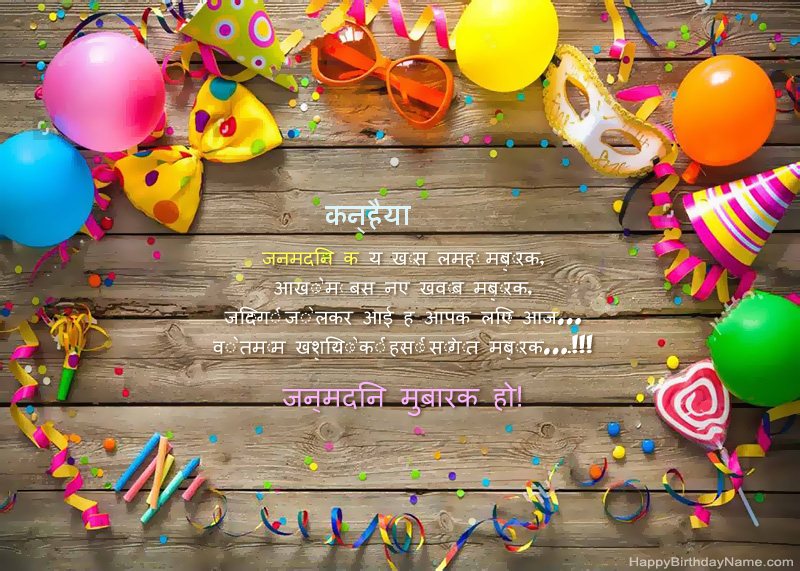 कन्हैया
जनमदनि क य खास लमह मबारक,
आखोम बस नए खवाब मबारक,
जदिगी जो लकर आई ह आपक लएि आज...
वो तमाम खशयिो की हसी सौगात मबारक...!!!
जन्मदनि मुबारक हो!
HappyBirthdayName.com